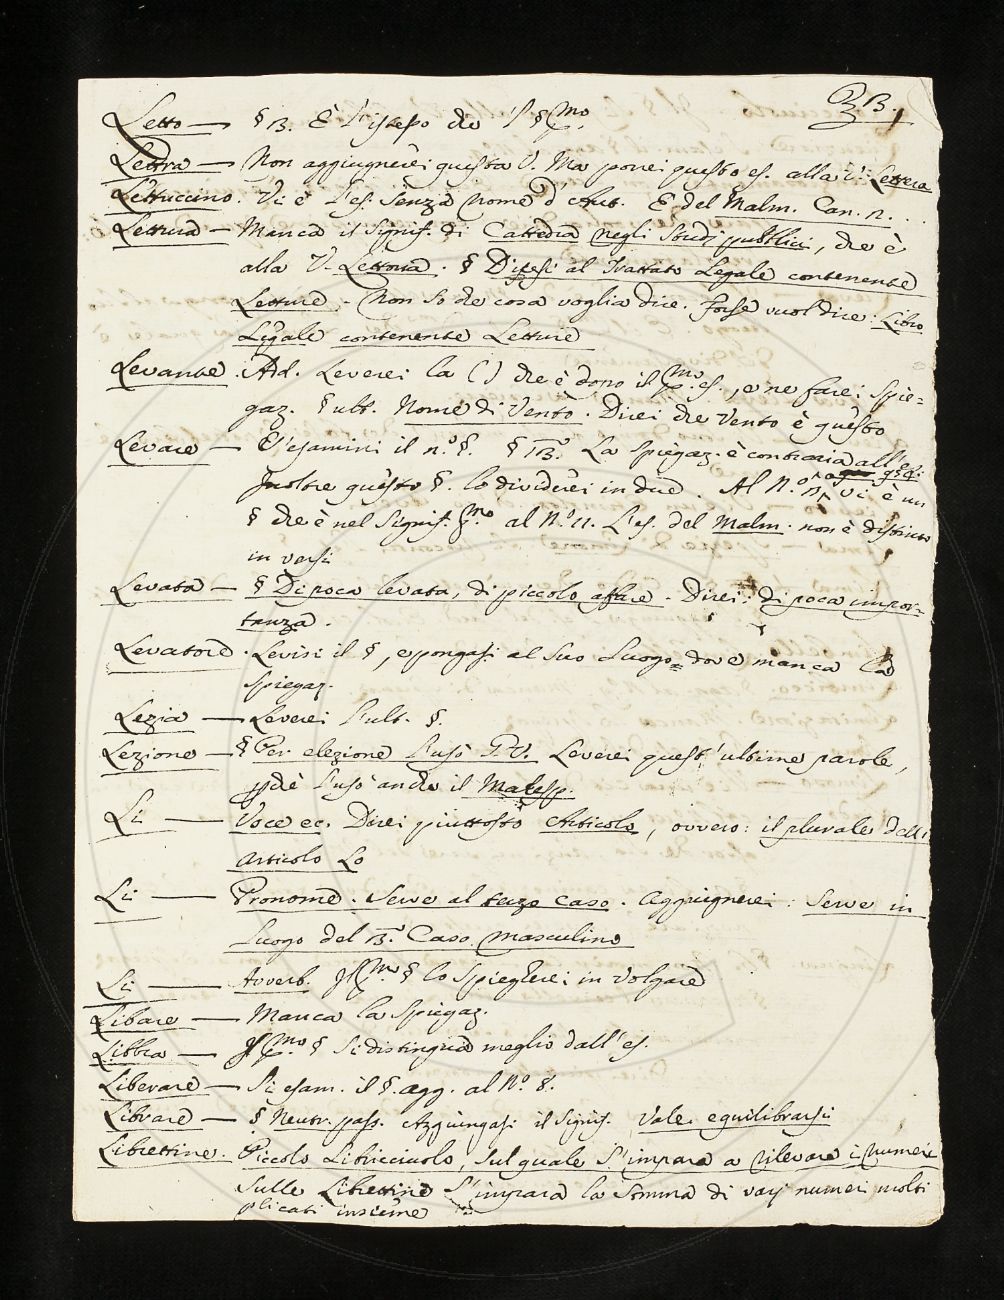 3B.
Letto — § B. È l'istesso che 'l § Pmo.
Lettra — Non aggiugnerei questa V. Ma porrei questo es. alla V. Lettera
Lettuccino. Vi è l'es. senza nome d'Aut. È del Malm. Can. n. . .
Lettura — Manca il Signif. di Cattedra negli Studi pubblici, che è
alla V. Lettoria. § Dicesi al Trattato Legale contenente
Letture. Non so che cosa voglia dire. Forse vuol dire: Libro
Legale contenente Letture
Levante. Ad. Leverei la () che è dopo il Pmo. es., e ne farei Spie=
gaz. § ult. Nome di Vento. Direi che Vento è questo
Levare — Esamini il n.° §. § B. La Spiegaz. è contraria all'es.
Inoltre questo §. lo dividerei in due. Al N.° vi è un
§ che è nel Signif. Pmo al N.° 11. L'es. del Malm. non è distinto
in versi
Levata — § Di poca levata, di piccolo affare. Direi: di poca impor=
tanza.
Levatore. Levisi il §, e pongasi al suo Luogo = dove manca la
Spiegaz.
Lezia — Leverei l'ult. §.
Lezione — § Per elezione l'usò G.V. Leverei quest'ultime parole,
pchè l'usò anche il Malesp.
Li — Voce ec. Direi piuttosto Articolo, ovvero: il plurale dell'
articolo Lo
Li — Pronome. Serve al terzo caso. Aggiugnerei: Serve in
Luogo del B.° Caso masculino
Li — Avverb. Il Pmo § lo Spiegherei in Volgare
Libare — Manca la Spiegaz.
Libbra — Il Pmo. § Si distingua meglio dall'es.
Liberare — Si esam. il §. agg. al N.° 8.
Librare — § Neutr. pass. Aggiungasi il Signif. Vale equilibrarsi
Librettine. Piccolo Libricciuolo, sul quale s'impara a rilevare i numeri
Sulle Librettine s'impara la Somma di varj numeri molti
plicati insieme